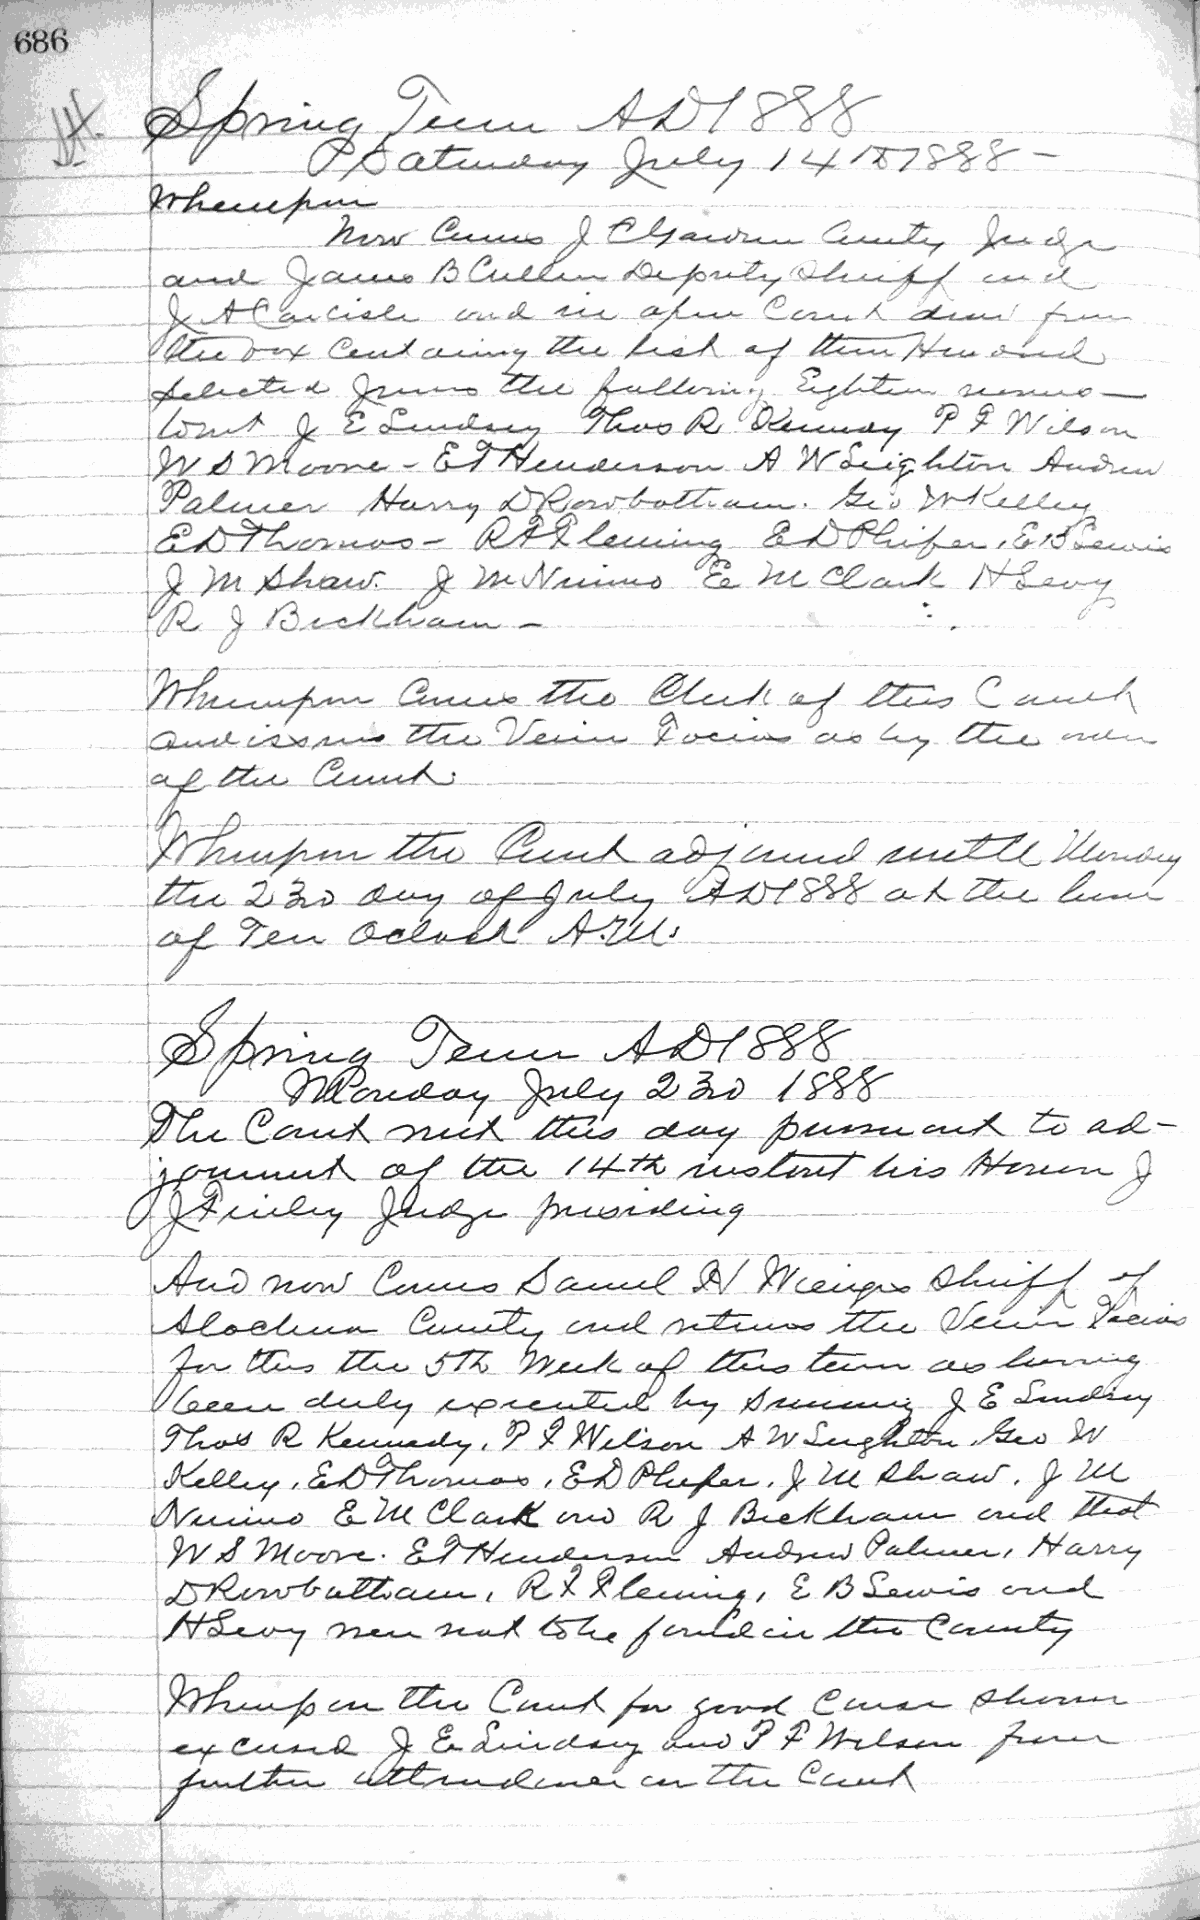 686
Spring Term AD 1888
Saturday July 14th 1888 -
Whereupon
Now Comes J C Gardner County Judge
and James B Cullen Deputy Sheriff and
J A Carlisle and in open Court draw from
the box Containing the list of three Hundred
Selected Jurors the following Eighteen names -
towit J E Lindsey Thos R Kennedy P F Wilson
W S Moore - E T Henderson A W Leighton Andrew
Palmer Harry D Rowbotham. Geo W Kelley
E D Thomas - R F Fleming E D Phifer, E B Lewis
J M Shaw. J M Nimmo E M Clark H Levy
R J Beckham -
Whereupon Comes the Clerk of this Court
and issues the Venire Facias as by the order
of the Court.
Whereupon the Court adjourned until Monday
the 23rd day of July AD 1888 at the hour
of Ten Oclock A.M.
Spring Term AD 1888
Monday July 23rd 1888
The Court met this day pursuant to ad-
jornment of the 14th instant his Honor J
J Finley Judge presiding
And now Comes Samuel H Wienges Sheriff of
Alachua County and returns the Venire Facias
for this the 5th Week of this term as having
been duly executed by summing J E Lindsey
Thos R Kennedy, P F Wilson A W Leighton, Geo W
Kelley, E D Thomas, E D Phifer, J M Shaw, J M
Nimmo E M Clark and R J Beckham and that
W S Moore. E T Henderson Andrew Palmer, Harry
D Rowbotham, R F Fleming, E B Lewis and
H Levy were not to be found in the County
Whereupon the Court for good Cause Shown
excused J E Lindsey and P F Wilson from
further attendance on the Court